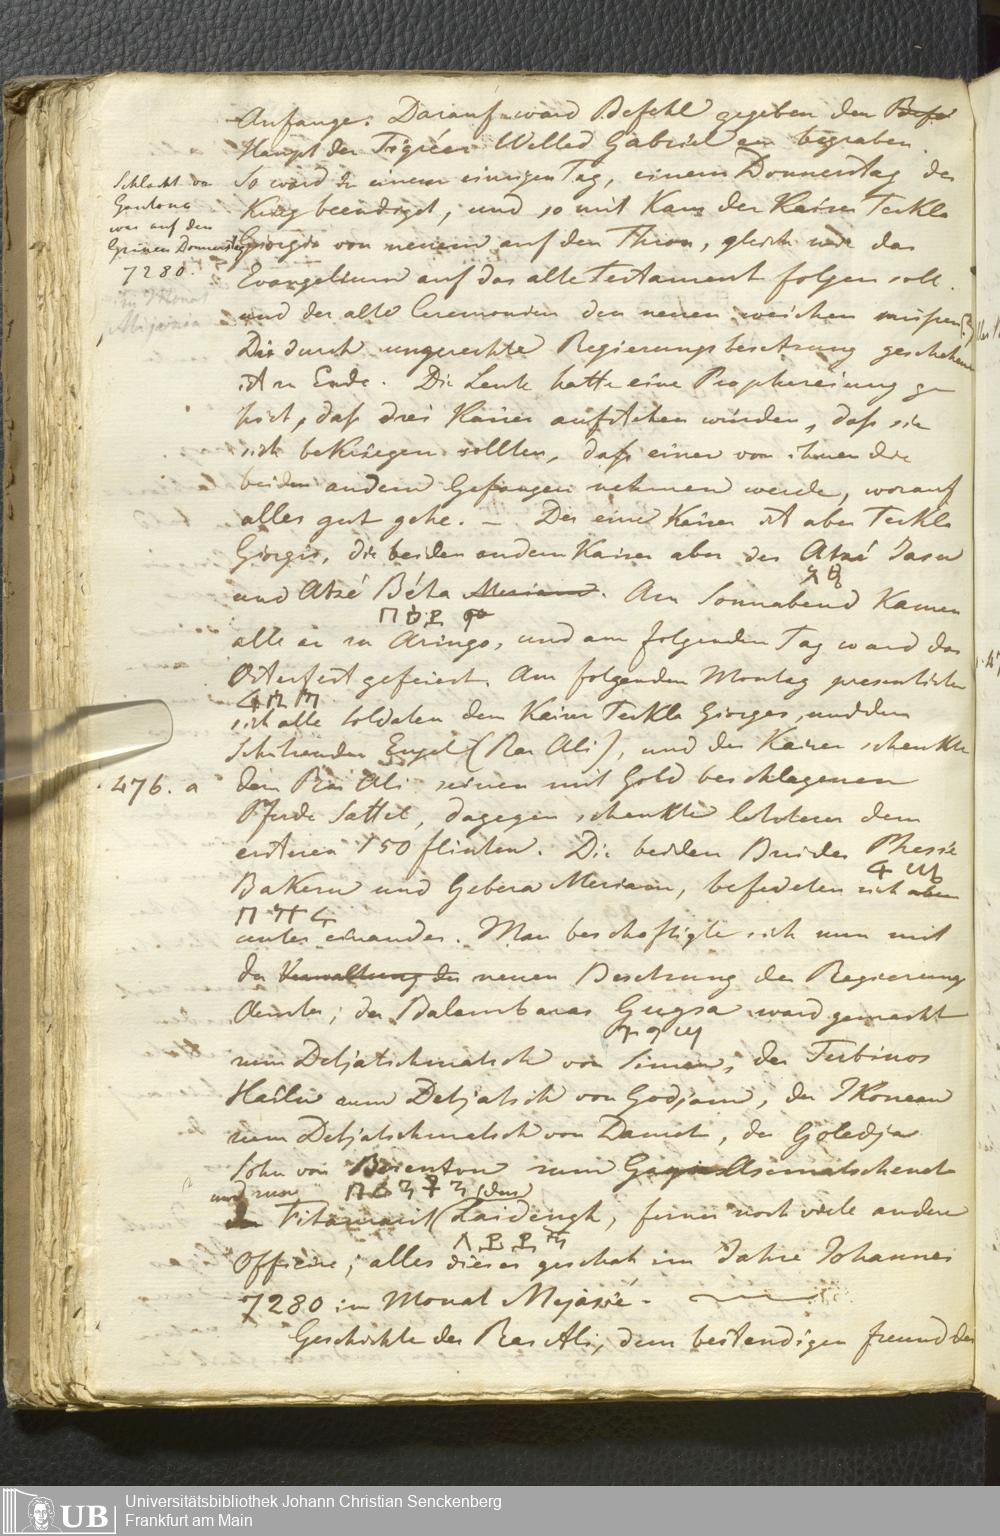 Anfange. Darauf ward Befehl gegeben den
Haupt der Tigréer Welled Gabriel zu begraben.
So ward in einem einzigen Tag, einem Donnerstag der
Krieg beendiget, und so mit Kam der Kaiser Teckla
Giorgis von neuem auf den Thron, gleich wie das
Evangelium auf das alte Testament folgen soll.
und die alte Ceremonien den neuen weichen müssen
Die durch ungerechte Regierungsbesetzung geschehene
ist zu Ende. Die Leute hatte eine Prophezeiung ge
hört, daß drei Kaiser aufstehen würden, daß sie
sich beKriegen sollten, daß einer von ihnen die
beiden andern Gefangen nehmen werde, worauf
alles gut gehe. — Der eine Kaiser ist aber Teckla
Giorgis, die beiden andern Kaiser aber der Atzé Jasu
und Atzé Béda. Am Sonnabend Kamen
alle er zu Aringo, und am folgenden Tag ward das
Osterfest gefeiert. Am folgenden Montag presentirten
sich alle Soldaten dem Kaiser Teckla Giorges, und dem
Schützenden Engel (Ras Ali), und der Kaiser schenkte
dem Ras Ali seinen mit Gold beschlagenen
Pferde Sattel, dagegen schenkte letzterer dem
ersteren 150 flinten. Die beiden Bruder
und Gebera Meriam, befedeten sich
unter einander. Man beschäftigte sich nun mit
der neuen Besetzung der Regierung
Aemter; der Balambaras Gugsa ward gemacht
zum Detjatschmatsch von Simen, der
Hailu zum Detjatsch von Godjam, der
zum Detjatschmatsch von Damot, der
Sohn von zum
und zum
Laidengh, ferner noch viele andere
Officire; alles dieses geschah im Jahre Johannes
7280 im Monat Mejasié.
Geschichte des Ras Ali, dem bestendigen freund des
Schlacht von
war auf den
Grünen Donnerstag
7280.
476. a
Universitätsbibliothek Johann Christian Senckenberg
Frankfurt am Main
UB